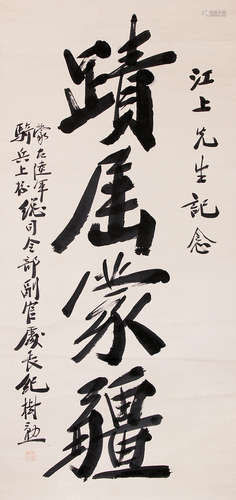 江上先生記念
蹟居蒙疆
蒙古陸軍總司令部副官處長紀樹勳
騎兵上校